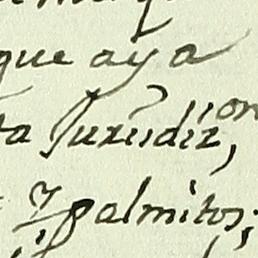 que aya
ta Juriidiz,on
palmitos;